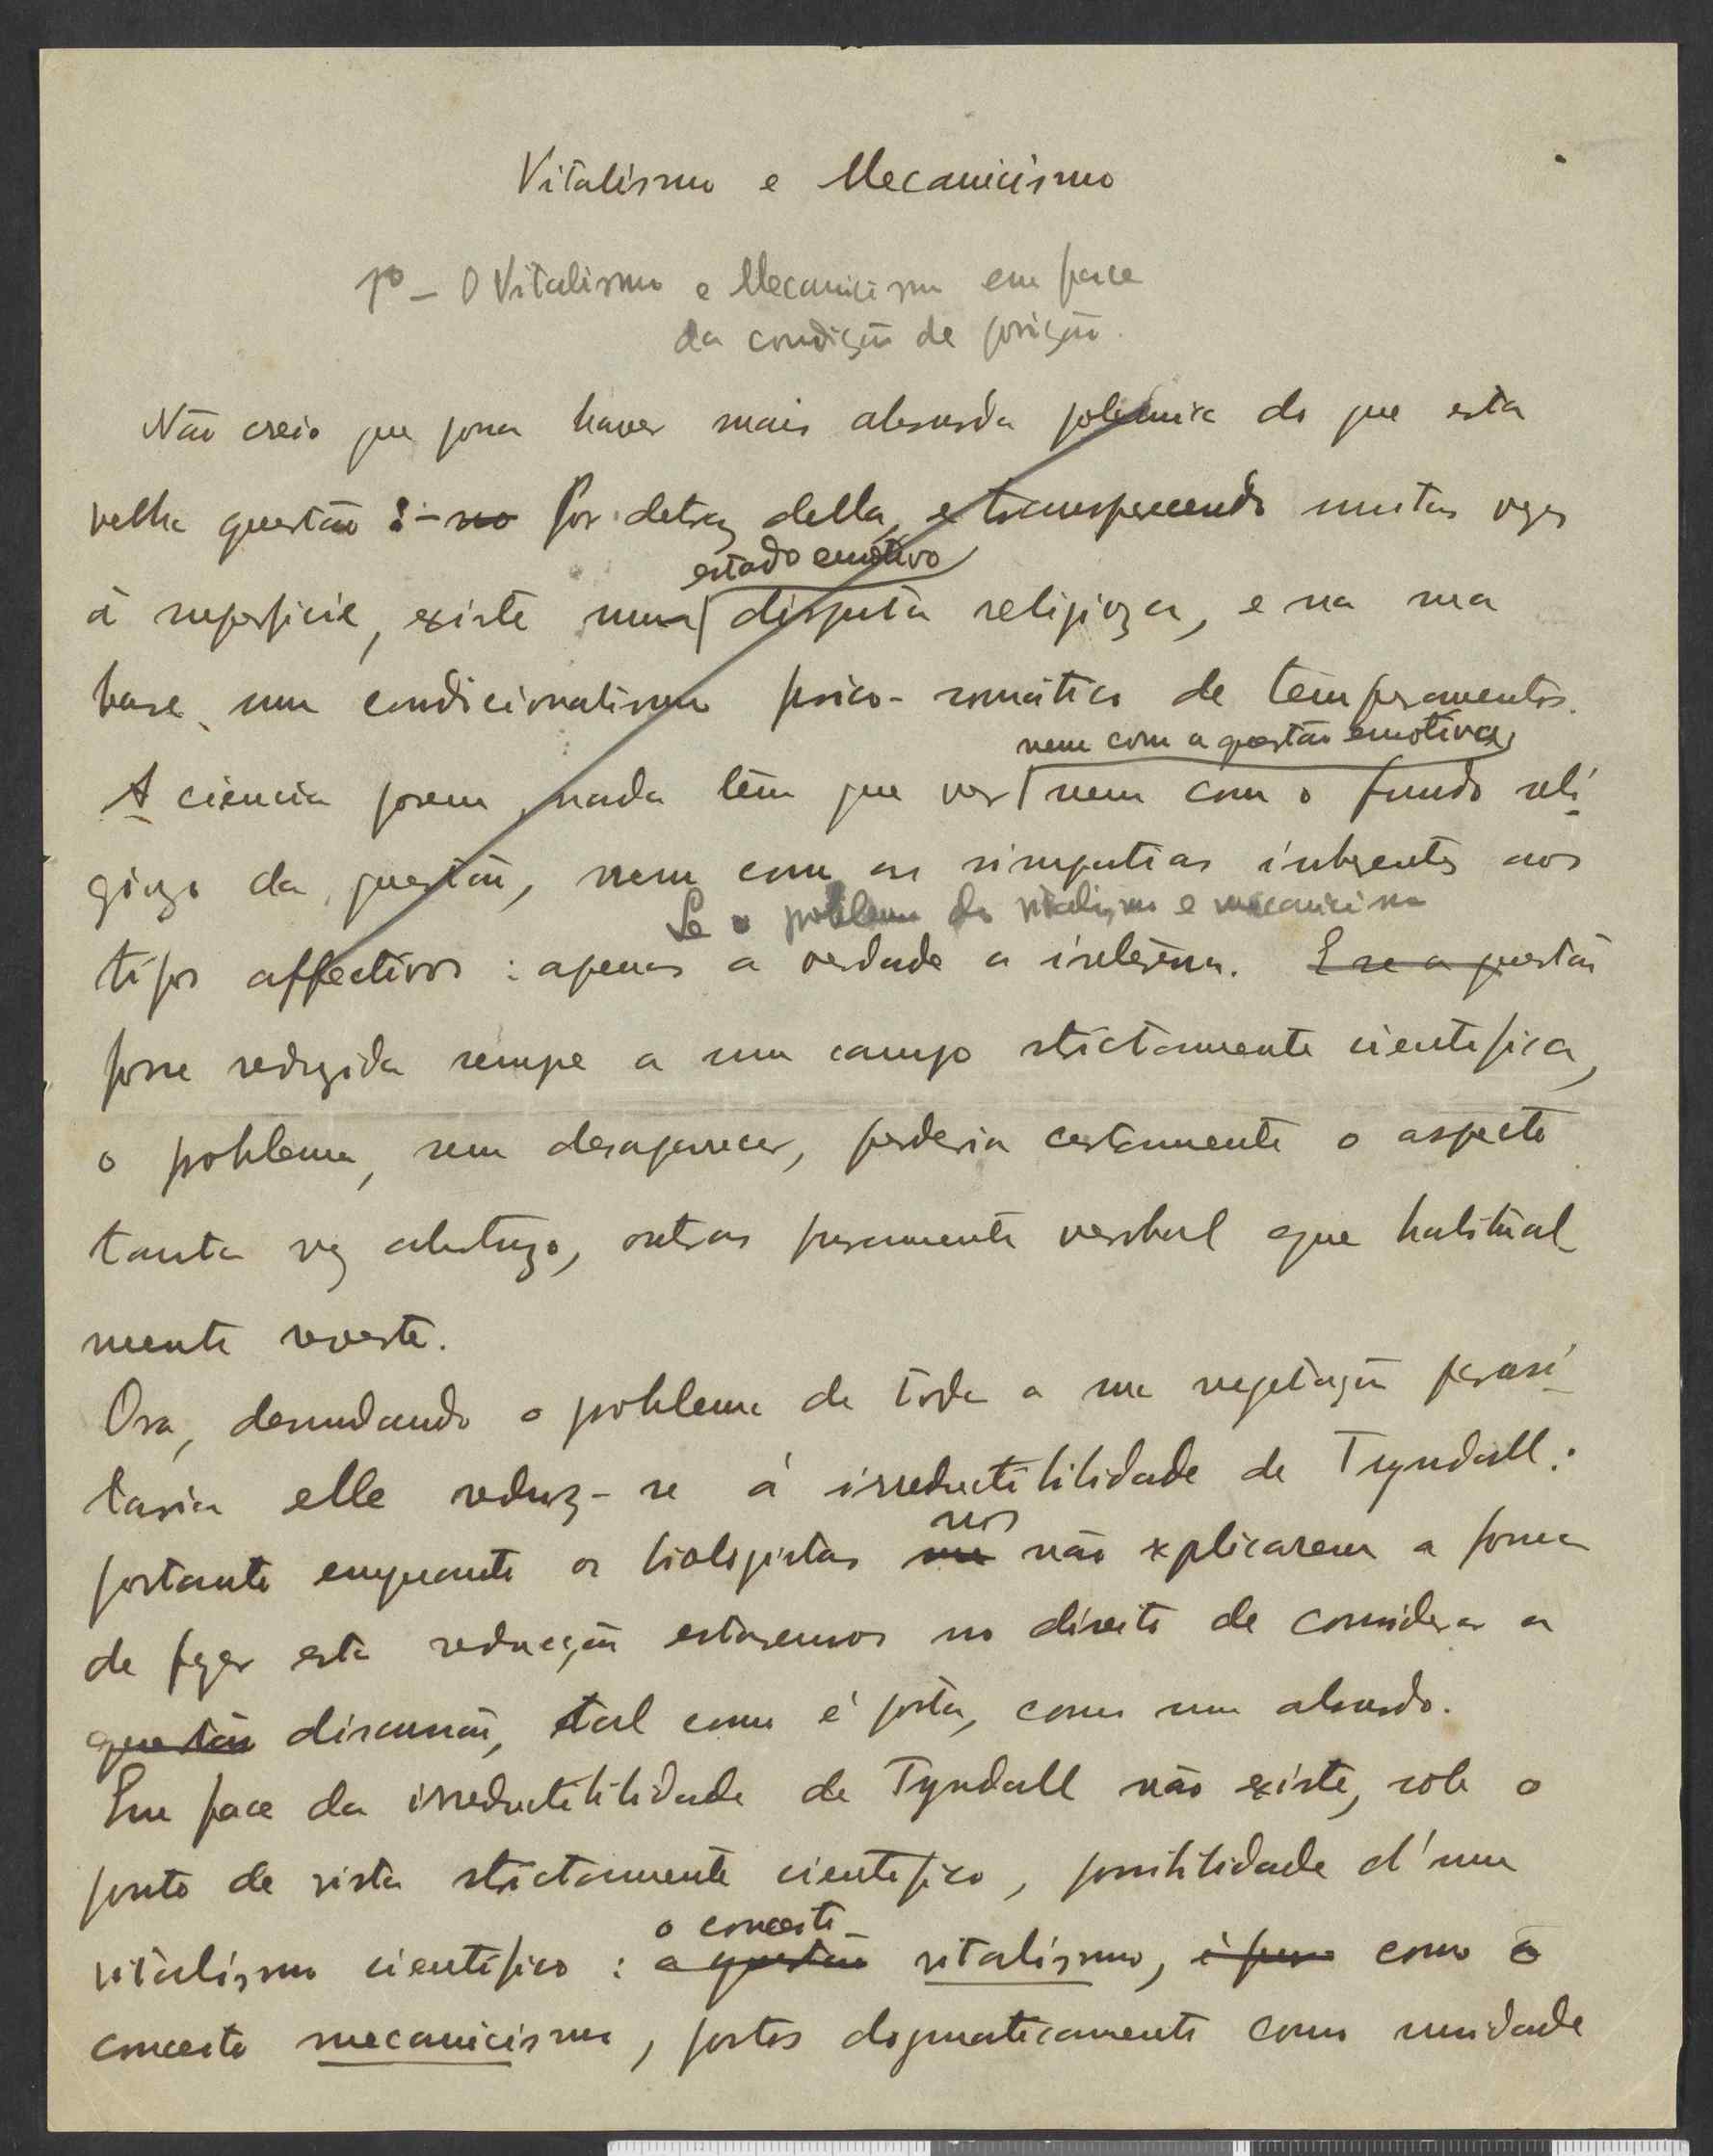 Vitalismo e Mecanicismo
1º – O Vitalismo e Mecanicismo em face
da condição de posição.
Não creio que possa haver mais absurda polemica do que esta
velha questão :- no Por detraz della, e transparecendo muitas vezes
estado emotivo
á superficie, existe uma disputa religioza, e na sua
base um condicionalismo psico-somático de temperamentos.
nem com a questão emotiva,
A ciencia porem, nada tem que ver nem com o fundo reli-
giozo da questão, nem com as simpatias inherentes aos
Se o problema do vitalismo e mecanicismo
tipos affectivos : apenas a verdade a interessa. E se a questão
fosse reduzida sempre a um campo strictamente cientifica,
o problema, sem desaparecer, perderia certamente o aspecto
tanta vez abstruzo, outras puramente verbal que habitual-
mente reveste.
Ora, desnudando o problema de toda a sua vegetação parasi-
taria elle reduz-se á irreductibilidade de Tyndall:
nos
portanto emquanto os biologistas me não explicarem a forma
de fazer esta reducção estaremos no direito de considerar a
questão discussão, tal como é posta, como um absurdo.
Em face da irreductibilidade de Tyndall não existe, sob o
ponto de vista strictamente cientifico, possibilidade d'um
o conceito
vitalismo cientifico : a questão vitalismo, é puro como o
conceito mecanicismo, postos dogmaticamente como unidade